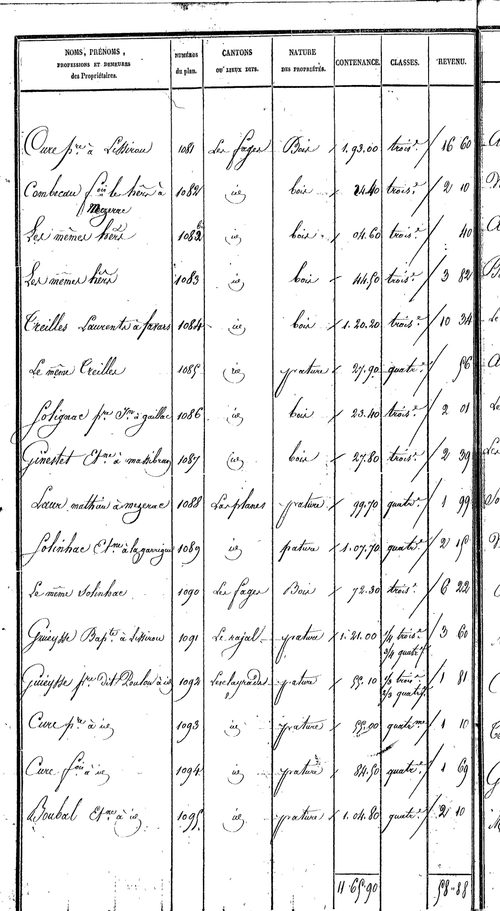 NOMS, PRÉNOMS,
PROFESSIONS ET DEMEURES
des Propriétaires.
NUMÉROS
du plan.
CANTONS
OU LIEUX DITS.
NATURE
DES PROPRIÉTÉS.
CONTENANCE.
CLASSES.
REVENU.
Cure p.re à Lissirou 1081 Les fages Bois 1.93.00 trois.e 16 60
Combecau f.ois les hérs à mezerac 1082 id bois 24.40 trois.e 2 10
Les mêmes hérs 1082 b id bois 04.60 trois.e 40
Les mêmes hérs 1083 id bois 44.50 trois.e 3 82
Treilles Laurents à favars 1084 id bois 1.20.20 trois.e 10 34
Le même Treilles 1085 id pature 27.90 quatr.e 56
Solignac p.re à gaillac 1086 id bois 23.40 trois.e 2 01
Ginestet Et.ne à massibrau 1087 id bois 27.80 trois.e 2 39
Laur mathieu à mezerac 1088 Las planes pature 99.70 quatr.e 1 99
Solinhac Et.ne à la garrigue 1089 id pature 1.07.70 quatr.e 2 15
Le même Solinhac 1090 Les fages Bois 72.30 trois.e 6 22
Gueysse Bap.te à Lissirou 1091 Le rajal pature 1.21.00 1/4 trois.e 3/4 quatr.e 3 60
Gueysse p.re dit Poulou à id 1092 pature 55.10 1/3 trois.e 2/3 quatr.e 1 81
Cure p.re à id 1093 id pature 55.00 quatr.me 1 10
Cure f.ois à id 1094 id pature 84.50 quatr.e 1 69
Boubal Et.ne à id 1095 id pature 1.04.80 quatr.e 2 10
11.65.90 58-88